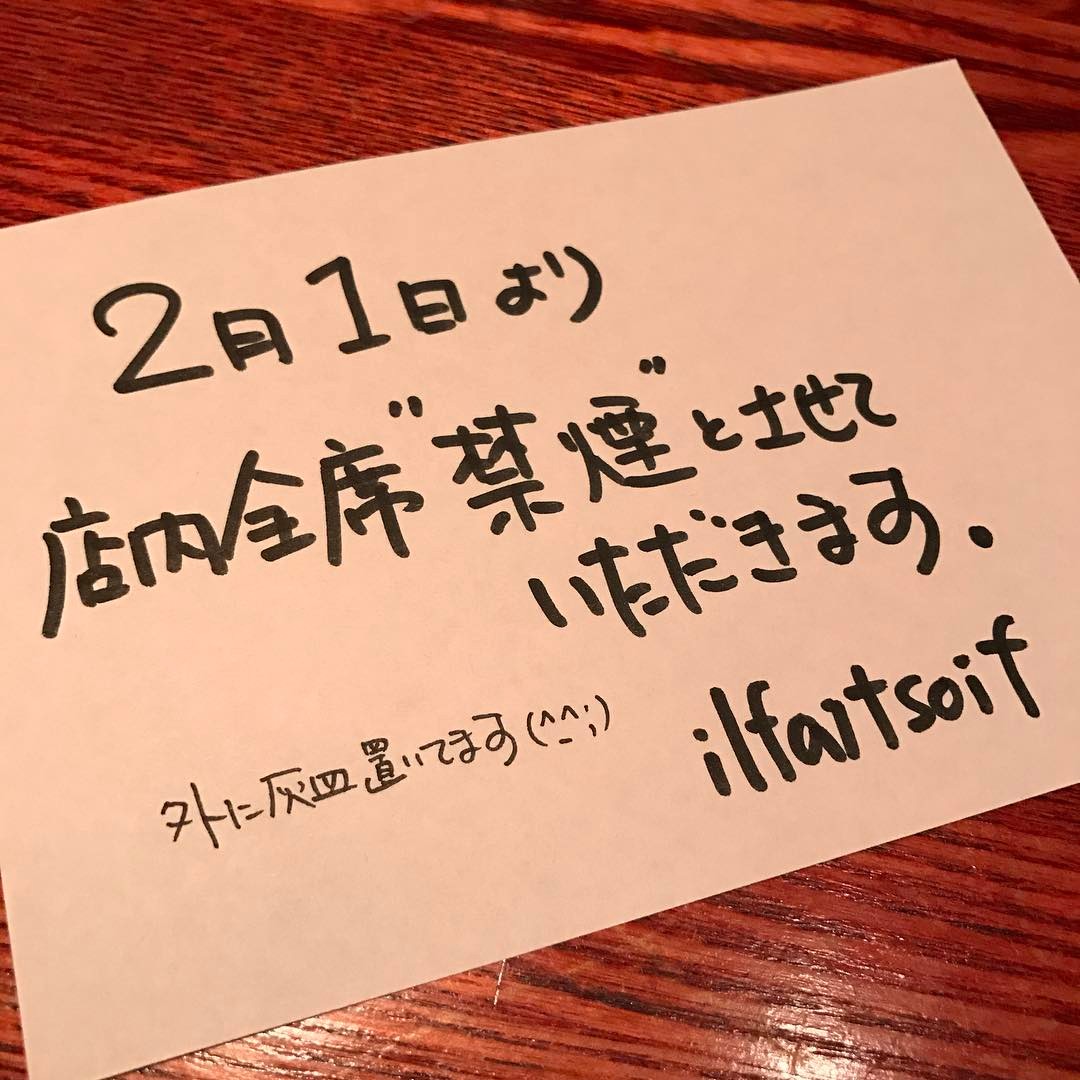 2月1日より
店内全席"禁煙"とさせて
いただきます.
ilfaitsoif
外に灰皿置いてます(^_^;)